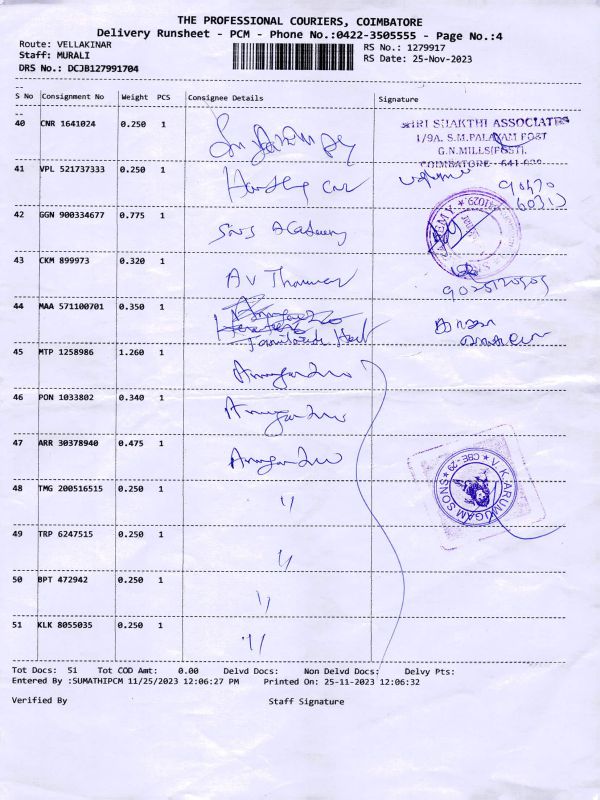 THE PROFESSIONAL COURIERS, COIMBATORE
Delivery Runsheet - PCM - Phone No.:0422-3505555 - Page No.:4
Route: VELLAKINAR
RS No.: 1279917
Staff: MURALI
RS Date: 25-Nov-2023
DRS No.: DCJB127991704
S No Consignment No Weight PCS Consignee Details Signature
40 CNR 1641024 0.250 1
SHRI SHAKTHI ASSOCIATES
1/9A, S.M.PALAYAM POST
G.N.MILLS(POST),
COIMBATORE - 641 029
41 VPL 521737333 0.250 1
42 GGN 900334677 0.775 1 Academy
43 CKM 899973 0.320 1 A V
44 MAA 571100701 0.350 1
45 MTP 1258986 1.260 1
46 PON 1033802 0.340 1
47 ARR 30378940 0.475 1
V.K ARUMUGAM SONS ★ CBE-29 ★
48 TMG 200516515 0.250 1 "
49 TRP 6247515 0.250 1 "
50 BPT 472942 0.250 1 "
51 KLK 8055035 0.250 1 "
Tot Docs: 51 Tot COD Amt: 0.00 Delvd Docs: Non Delvd Docs: Delvy Pts:
Entered By :SUMATHIPCM 11/25/2023 12:06:27 PM Printed On: 25-11-2023 12:06:32
Verified By Staff Signature